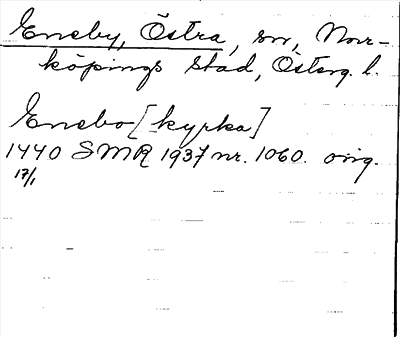 Eneby, Östra, sn, Norr-
köpings stad, Österg. l.
Enebo [kyrka]
1440 SMR 1937 nr. 1060. orig.
17/1